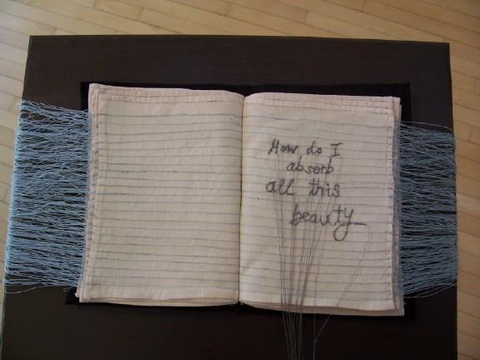 How do I
absorb
all this
beauty